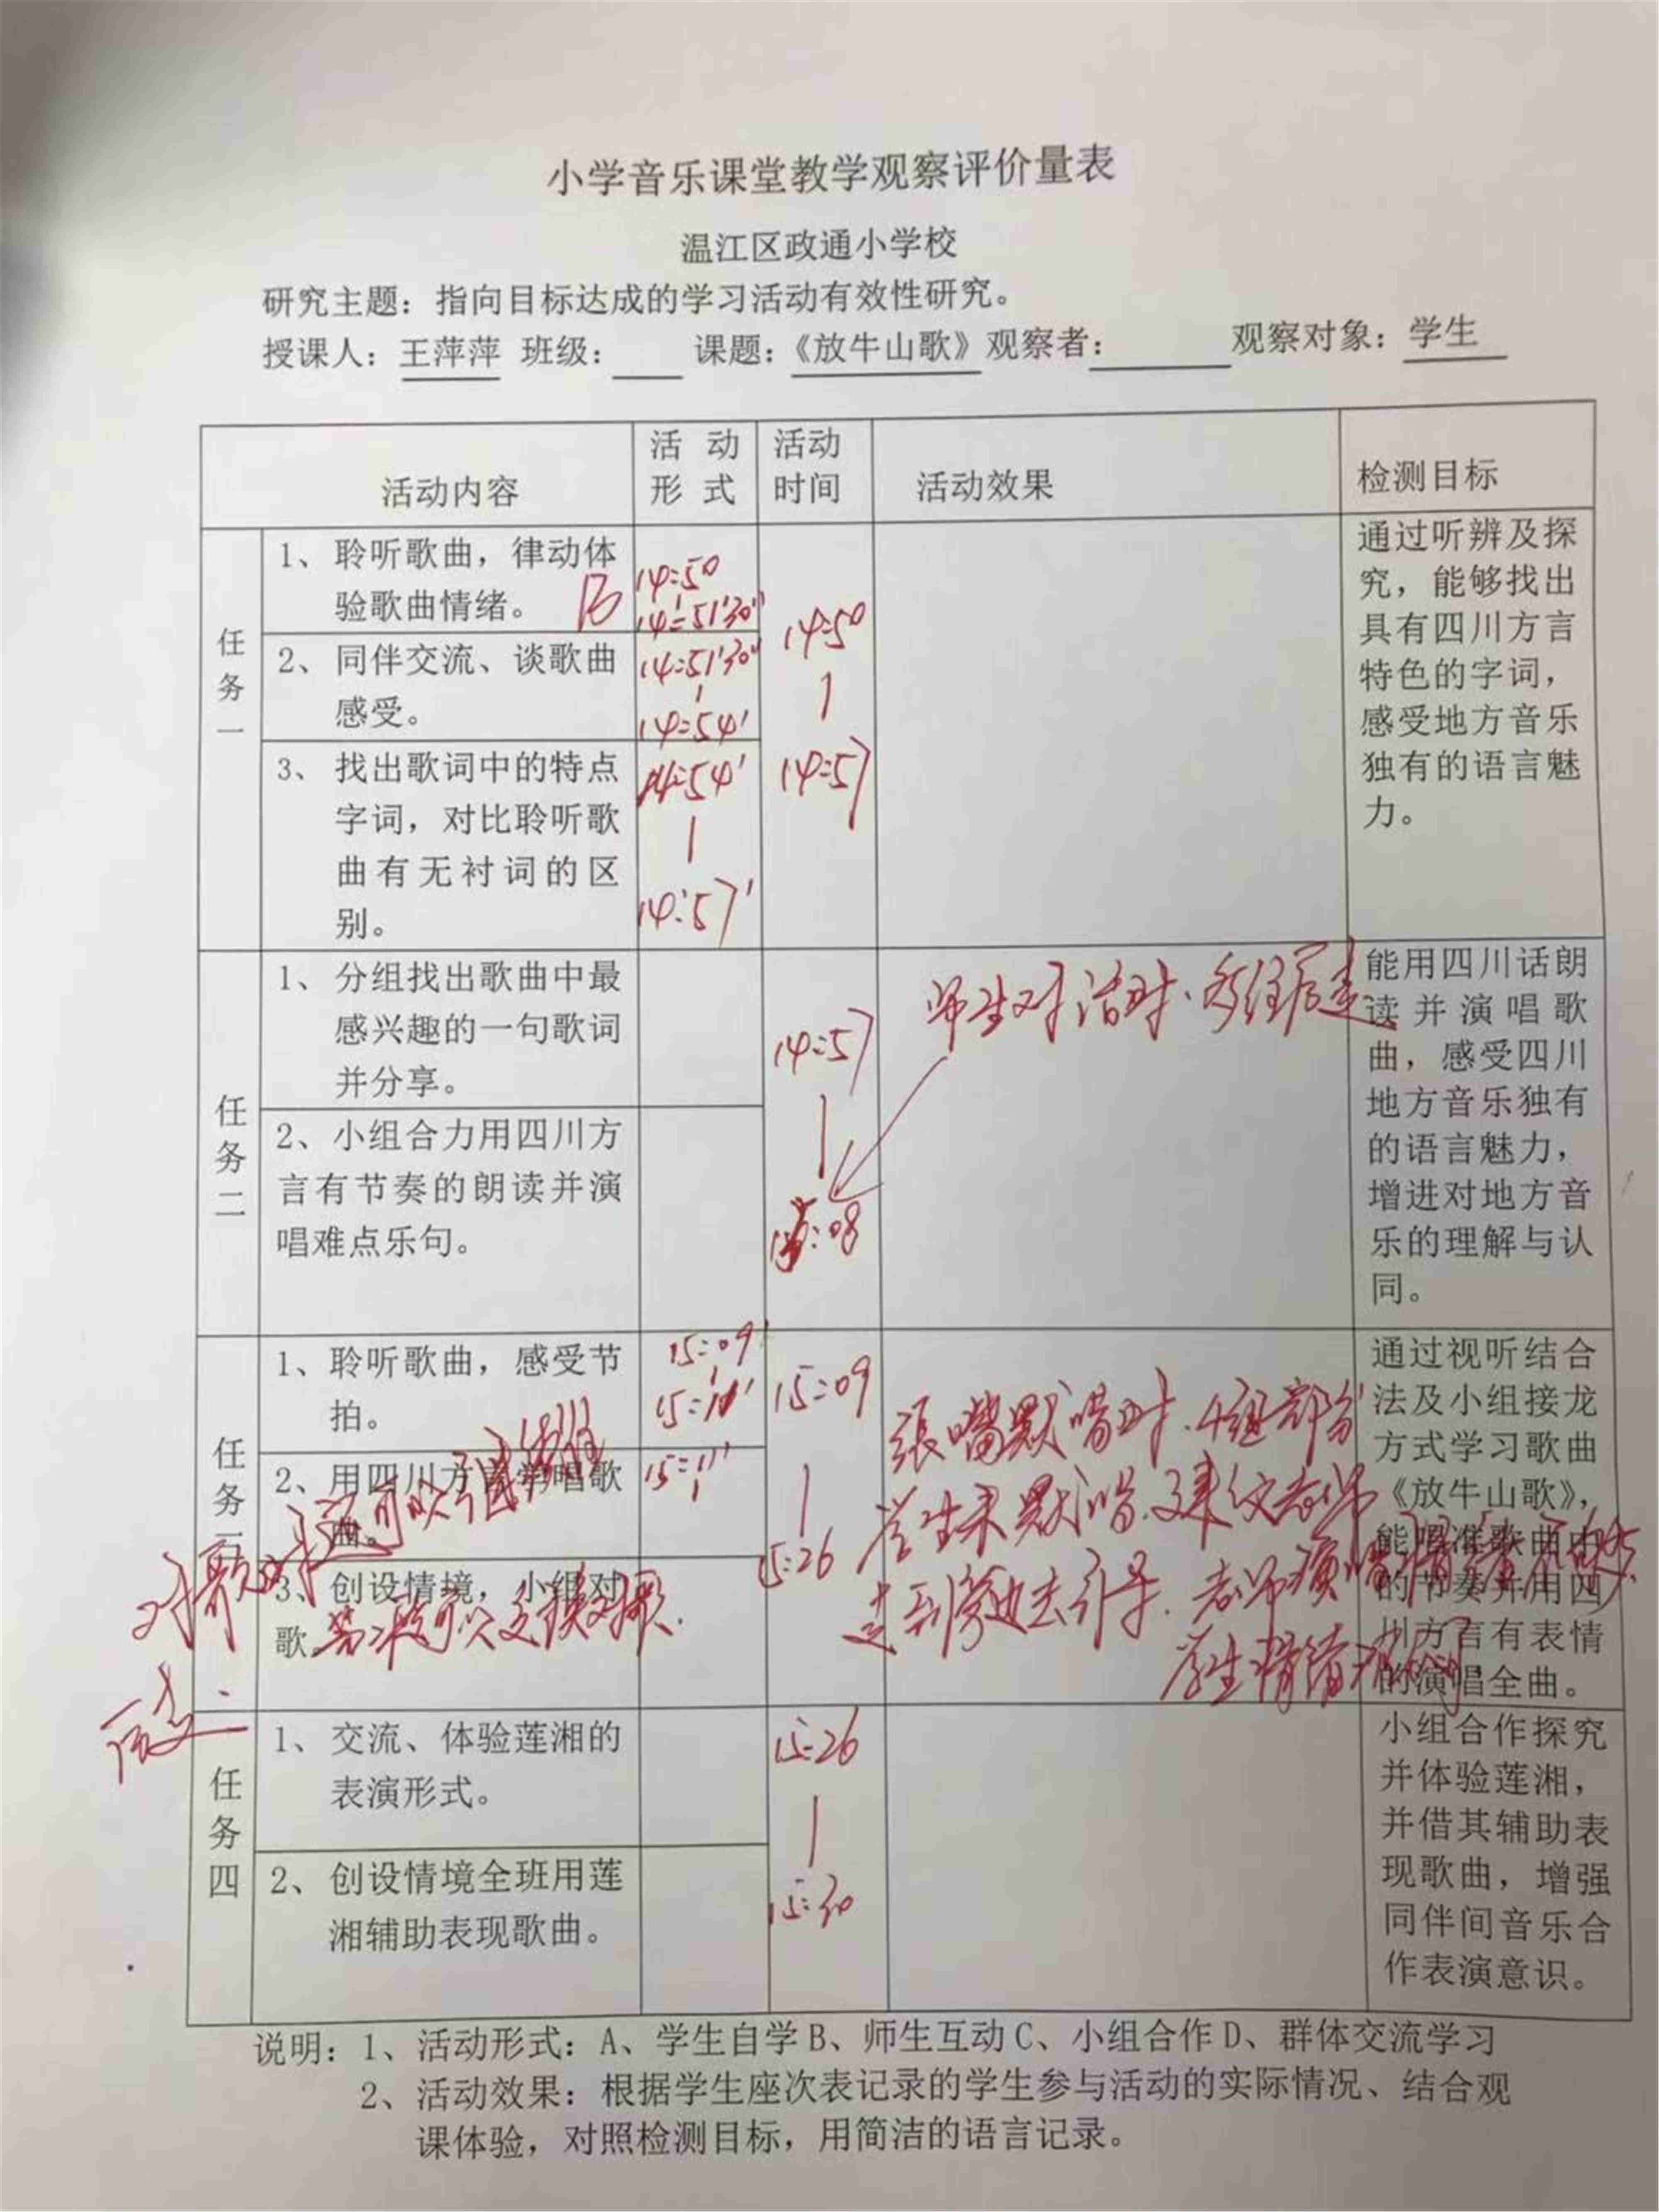 小学音乐课堂教学观察评价量表
温江区政通小学校
研究主题：指向目标达成的学习活动有效性研究。
授课人：王萍萍 班级： 课题：《放牛山歌》观察者： 观察对象：学生
活动内容
活 动
形 式
活动
时间
活动效果
检测目标
任
务
一
1、聆听歌曲，律动体
验歌曲情绪。
B
14:50
14:51'30''
2、同伴交流、谈歌曲
感受。
14:51'30''
14:54'
3、找出歌词中的特点
字词，对比聆听歌
曲有无衬词的区
别。
14:54'
14:57'
14:50
14:57
通过听辨及探
究，能够找出
具有四川方言
特色的字词，
感受地方音乐
独有的语言魅
力。
任
务
二
1、分组找出歌曲中最
感兴趣的一句歌词
并分享。
2、小组合力用四川方
言有节奏的朗读并演
唱难点乐句。
14:57
15:08
师生对话时、
能用四川话朗
读并演唱歌
曲，感受四川
地方音乐独有
的语言魅力，
增进对地方音
乐的理解与认
同。
任
务
三
1、聆听歌曲，感受节
拍。
15:09'
15:11'
2、用四川方言学唱歌
曲。
15:11'
3、创设情境，小组对
歌。
对歌时
第二段可以交换对歌.
15:09
15:26
张嘴默唱时、4组部分
学生未默唱、
走到旁边去引导. 老师演唱情绪
学生情绪
通过视听结合
法及小组接龙
方式学习歌曲
《放牛山歌》，
能唱准歌曲中
的节奏并用四
川方言有表情
的演唱全曲。
任
务
四
1、交流、体验莲湘的
表演形式。
2、创设情境全班用莲
湘辅助表现歌曲。
15:26
15:30
小组合作探究
并体验莲湘，
并借其辅助表
现歌曲，增强
同伴间音乐合
作表演意识。
说明：1、活动形式：A、学生自学 B、师生互动 C、小组合作 D、群体交流学习
2、活动效果：根据学生座次表记录的学生参与活动的实际情况、结合观
课体验，对照检测目标，用简洁的语言记录。